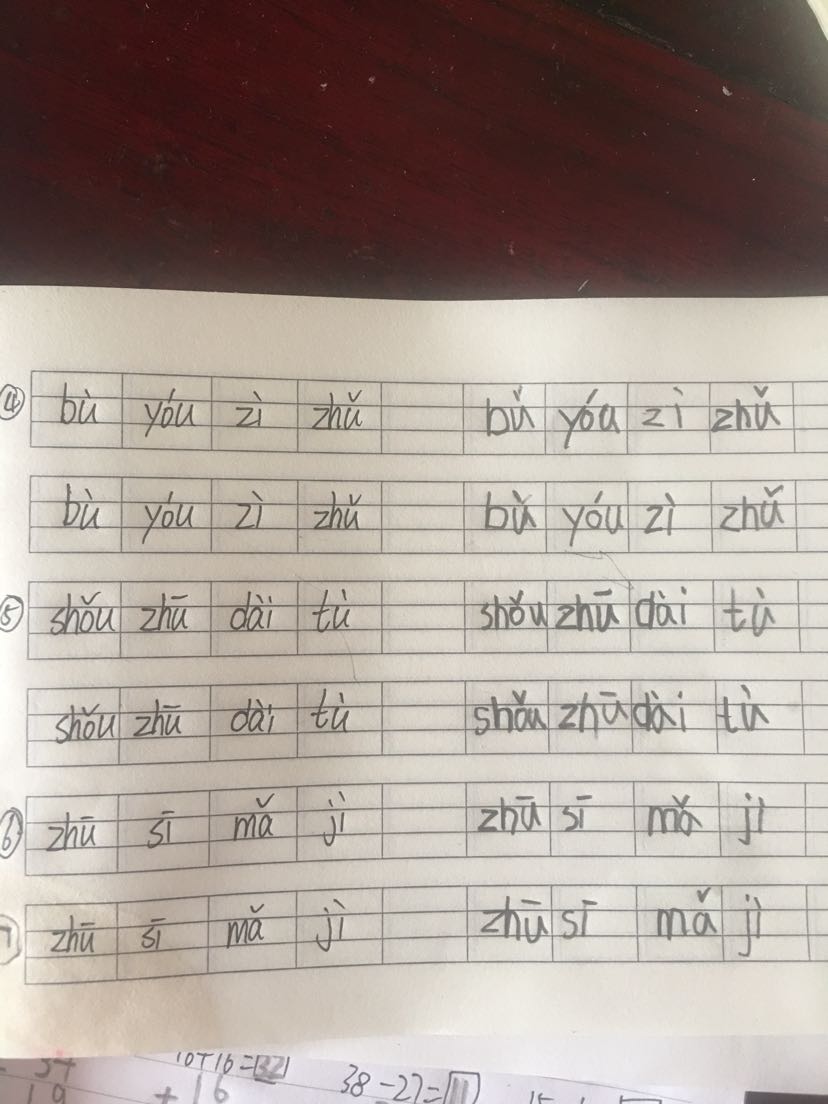 ④ bù yóu zì zhǔ bǔ yóu zì zhǔ
bù yóu zì zhǔ bǔ yóu zì zhǔ
⑤ shǒu zhū dài tù shǒu zhū dài tù
shǒu zhū dài tù shǒu zhū dài tù
⑥ zhū sī mǎ jì zhū sī mǎ jì
⑦ zhū sī mǎ jì zhū sī mǎ jì
16+16=32 38-27=11
19 +16